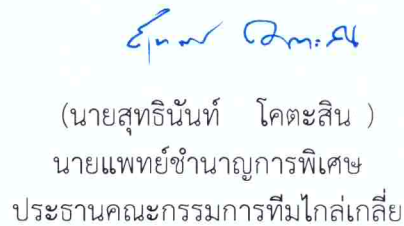 (นายสุทธินันท์ โคตะสิน )
นายแพทย์ชำนาญการพิเศษ
ประธานคณะกรรมการทีมไกล่เกลี่ย